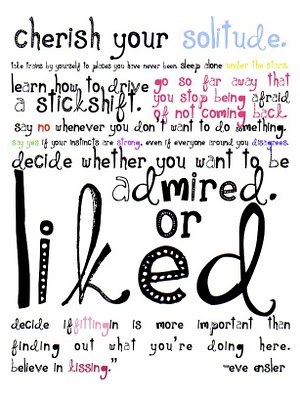 cherish your solitude.
take trains by yourself to places you have never been. sleep alone under the stars.
learn how to drive a stickshift.
go so far away that you stop being afraid of not coming back.
say no whenever you don't want to do something.
say yes if your instincts are strong. even if everyone around you disagrees.
decide whether you want to be
admired.
or
liked
decide if fitting in is more important than
finding out what you're doing here.
believe in kissing."
-eve ensler